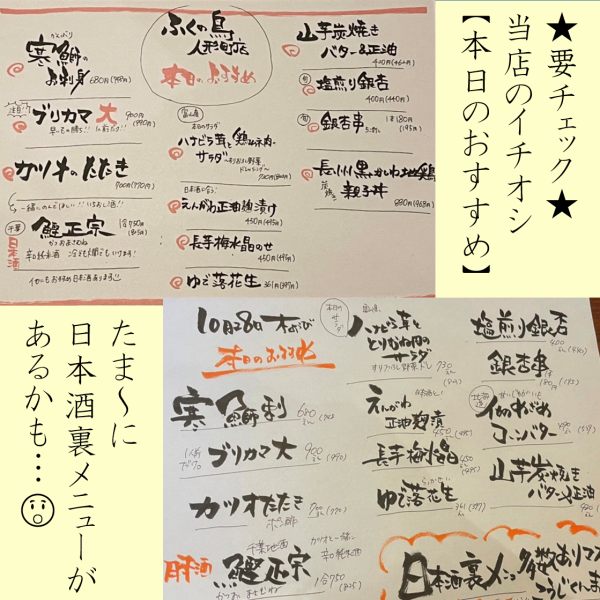 ★要チェック★
当店のイチオシ
【本日のおすすめ】
ふくの鳥
人形町店
本日のおすすめ
寒鰤の
お刺身 680円(748円)
注目!!
ブリカマ 大 900円
(990円)
カツオのたたき
700円(770円)
千葉
日本酒
鰹正宗 1合750円
(825円)
かつおまさむね
辛口純米酒 冷でも燗でもいけます!
他にもおすすめ日本酒あります
富山産
本日のサラダ
ハナビラ茸と鶏ムネ肉の
サラダ
日本酒に合う!
えんがわ正油麹漬け
450円(495円)
長芋梅水晶のせ
450円(495円)
ゆで落花生 361円(397円)
山芋炭焼き
バター&正油
420円(462円)
旬
塩煎り銀杏
400円(440円)
旬
銀杏串 1本180円
(198円)
長州黒かしわ地鶏
親子丼
880円(968円)
たま〜に
日本酒裏メニューが
あるかも…
10月28日
本日のおすすめ
寒鰤刺 680
ブリカマ大 900
(990)
カツオたたき 700 (770)
ポン酢
日本酒
千葉地酒
鰹正宗
かつおまさむね
カツオと一緒に
辛口純米酒
1合750
(825)
本日のサラダ
富山産
ハナビラ茸と
とりむね肉の
サラダ
730
えんがわ
正油麹漬
450 (495)
長芋梅水晶 450
(495)
ゆで落花生
361 (397)
塩煎り銀杏
400 (440)
銀杏串 1本
180円 (198)
北海道
コーンバター
山芋炭焼き
バター&正油
日本酒裏メニュー
多数あります